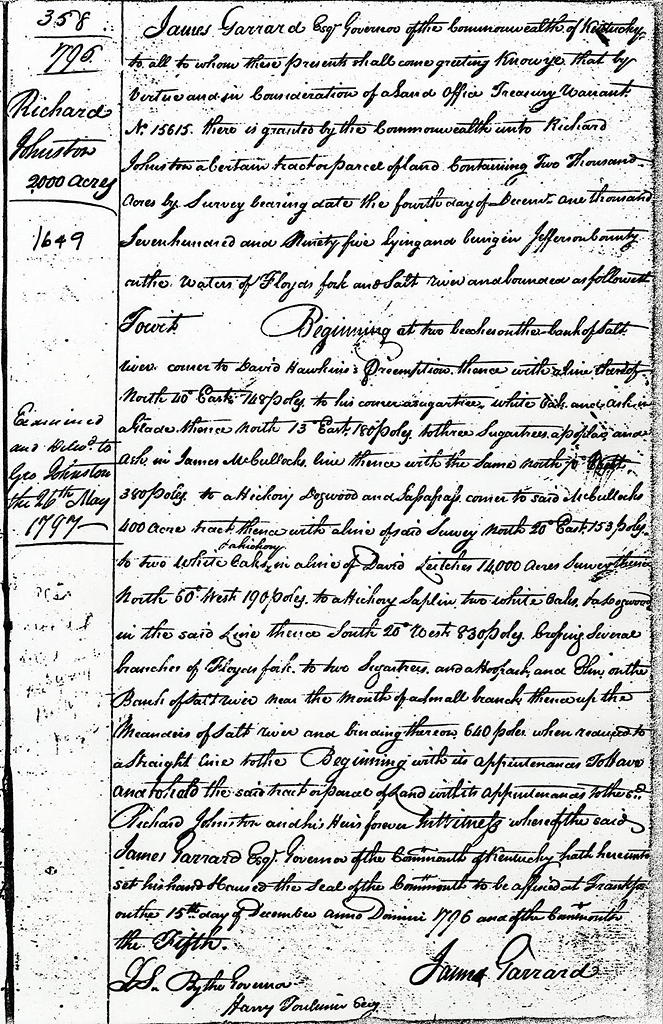 358
796
Richard
Johnston
2000 Acres
1649
Examined
and Deliv.d to
Geo. Johnston
the 26th May
1797
James Garrard Esqr. Governor of the Commonwealth of Kentucky
to all to whom these presents shall come greeting Know ye that by
Virtue and in Consideration of a Land Office Treasury Warrant
No. 15615. there is granted by the Commonwealth unto Richard
Johnston a Certain tract or parcel of land Containing Two Thousand
Acres by Survey bearing date the fourth day of Decemr. one thousand
Seven hundred and Ninety five lying and being in Jefferson County
on the Waters of Floyds fork and Salt river and bounded as followeth
Towit Beginning at two beaches on the bank of Salt
river corner to David Hawkins's Preemption thence with a line thereof
North 40° East 148 poles to his corner a sugartree, white Oak and Ash in
a Glade thence North 13° East 180 poles to three Sugartrees a poplar and
Ash in James McCullochs line thence with the Same North East
380 poles to a Hickory Dogwood and Sassafrass corner to said McCullochs
400 Acre tract thence with a line of said Survey North 20° East 153 poles
to two White Oaks & a hickory in a line of David Leitches 14,000 Acres Survey thence
North 60° West 190 poles to a Hickory Saplin two white Oaks & a Dogwood
in the said Line thence South 20° West 830 poles Crossing Several
branches of Floyds fork to two Sugartrees and a Hoopash and Elm on the
Bank of Salt river near the Mouth of a Small branch thence up the
Meanders of Salt river and binding thereon 640 poles when reduced to
a Straight Line to the Beginning with its appurtenances To Have
and to hold the said tract or parcel of Land with its Appurtenances to the sd.
Richard Johnston and his Heirs forever In Witness whereof the said
James Garrard Esqr. Governor of the Commonth of Kentucky hath hereunto
set his hand & caused the Seal of the Commonth to be affixed at Frankfort
on the 15th day of December Anno Domini 1796 and of the Commonth
the Fifth.
L.S. By the Governor James Garrard
Harry Toulmin Secy